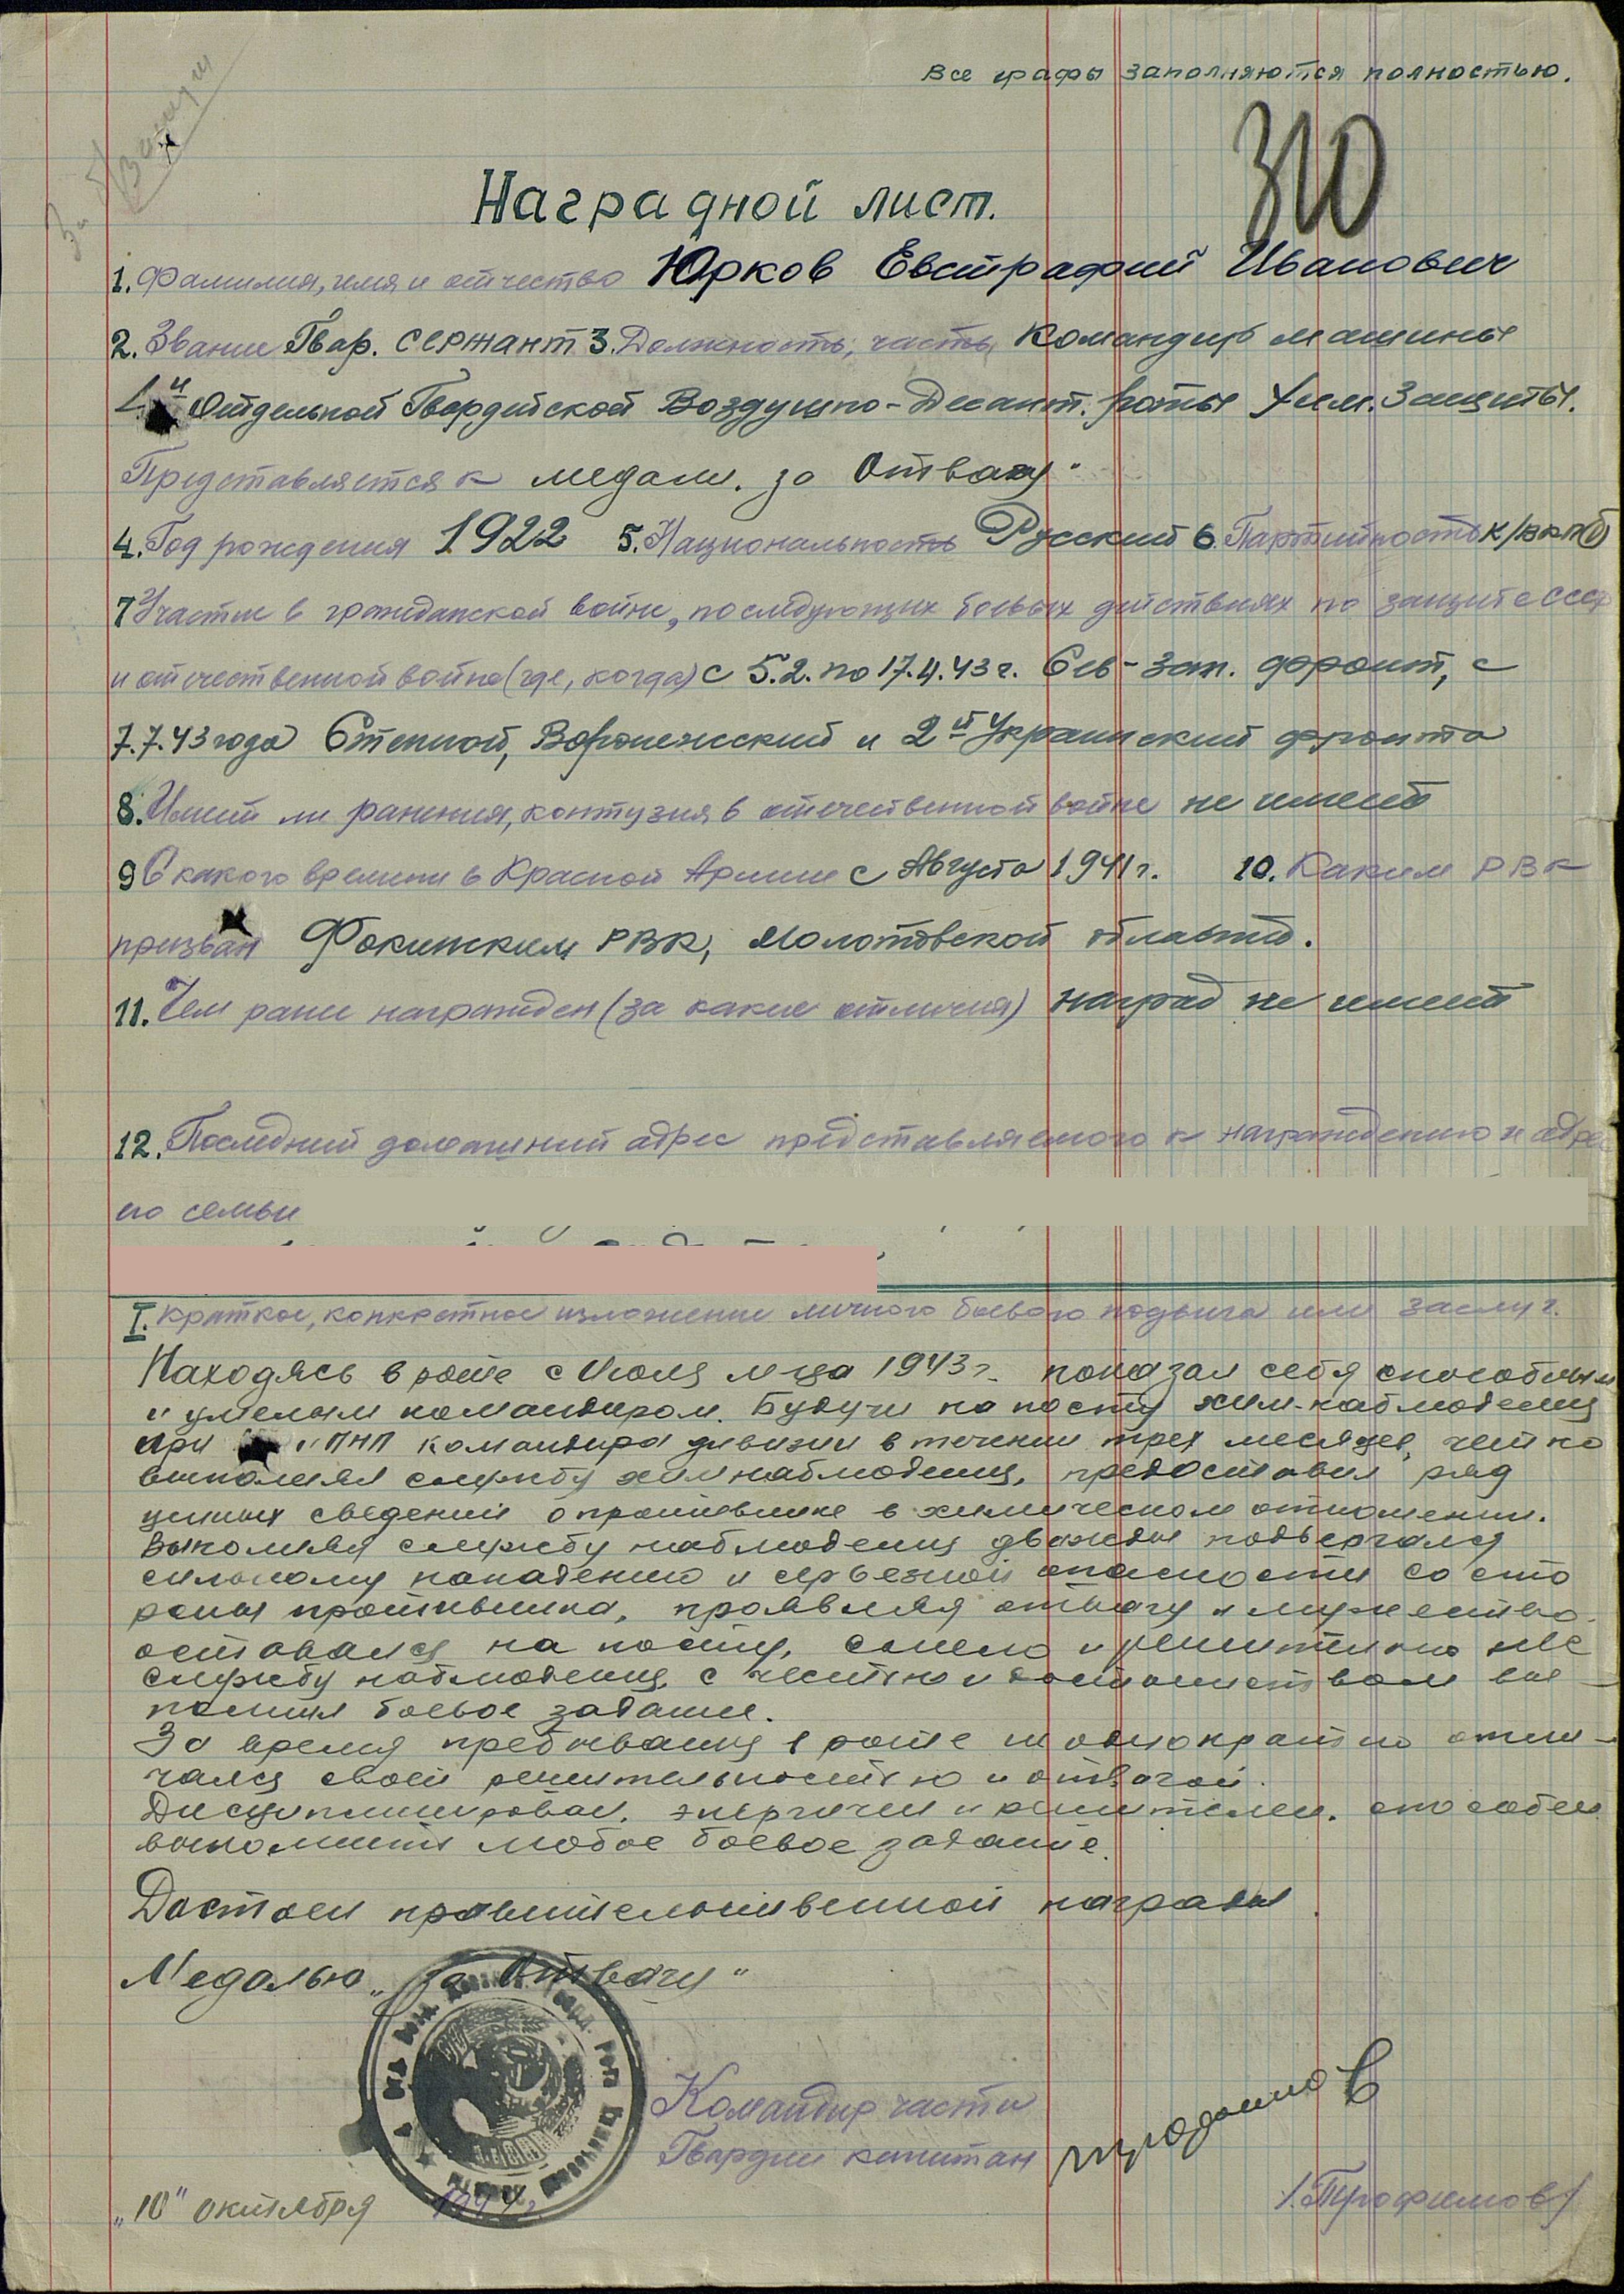 Все графы заполняются полностью.
310
За Отвагу
Наградной лист.
1. Фамилия, имя и отчество Юрков Евстрафий Иванович
2. Звание Гвар. сержант 3. Должность, часть Командир машины
1й Отдельной Гвардейской Воздушно-Десант. роты Хим. Защиты.
Представляется к медали. за Отвагу"
4. Год рождения 1922 5. Национальность Русский 6. Партийность к/ВКП(б)
7 Участие в гражданской войне, последующих боевых действиях по защите СССР
и отечественной войне (где, когда) с 5.2. по 17.4.43 г. Сев-Зап. фронт, с
7.7.43 года Степной, Воронежский и 2й Украинский фронта
8. Имеет ли ранения, контузия в отечественной войне не имеет
9 С какого времени в Красной Армии с Августа 1941 г. 10. Каким РВК
призван Фокинским РВК, Молотовской области.
11. Чем ранее награжден (за какие отличия) наград не имеет
12. Последний домашний адрес представляемого к награждению и адрес
его семьи
I. Краткое, конкретное изложение личного боевого подвига или заслуг.
Находясь в роте с Июля м-ца 1943 г. показал себя способным
и умелым командиром. Будучи на посту хим-наблюдения
при ПНП командира дивизии в течении трех месяцев, четко
выполнял службу химнаблюдения, предоставил ряд
ценных сведений о противнике в химическом отношении.
Выполняя службу наблюдения дважды подвергался
сильному нападению и серьезной опасности со сто
роны противника, проявляя отвагу и мужество.
оставался на посту, смело и решительно нес
службу наблюдения, с честью и достоинством вы-
полнил боевое задание.
За время пребывания в роте неоднократно отли-
чался своей решительностью и отвагой.
Дисциплинирован, энергичен и решителен. способен
выполнить любое боевое задание.
Достоен правительственной награды
Медалью „за Отвагу"
Командир части
Гвардии капитан
/Трофимов/
„10" октября